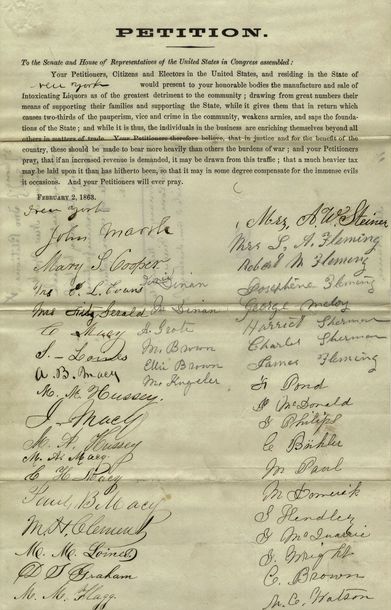 PETITION.
To the Senate and House of Representatives of the United States in Congress assembled:
Your Petitioners, Citizens and Electors in the United States, and residing in the State of
New York would present to your honorable bodies the manufacture and sale of
Intoxicating Liquors as of the greatest detriment to the community; drawing from great numbers their
means of supporting their families and supporting the State, while it gives them that in return which
causes two-thirds of the pauperism, vice and crime in the community, weakens armies, and saps the founda-
tions of the State; and while it is thus, the individuals in the business are enriching themselves beyond all
others in matters of trade. Your Petitioners therefore believe, that in justice and for the benefit of the
country, these should be made to bear more heavily than others the burdens of war; and your Petitioners
pray, that if an increased revenue is demanded, it may be drawn from this traffic; that a much heavier tax
may be laid upon it than has hitherto been, so that it may in some degree compensate for the immense evils
it occasions. And your Petitioners will ever pray.
FEBRUARY 2, 1863.
New York
John
Mary S Cooper
Mrs E. L. Evans
Mrs Fitz Gerald
C Macy
S. Loines
A. B. Macy
M. M. Hussey.
J. Macy
M. A. Hussey
M. A. Macy
C H Macy
B Macy
M. H. Clement
M. M. Loines
D S Graham
M. M. Flagg.
Dinan
M Dinan
A Grote
M Brown
Ellie Brown
Mo
Mrs. A. W. Steiner
Mrs S. A. Fleming
Robert M Fleming
Josephine Fleming
George
Harriet Sherman
Charles Sherman
James Fleming
Pond
McDonald
Philips
C
M Paul
M
J Hendley
J
J. Wright
C. Brown
M. C. Watson